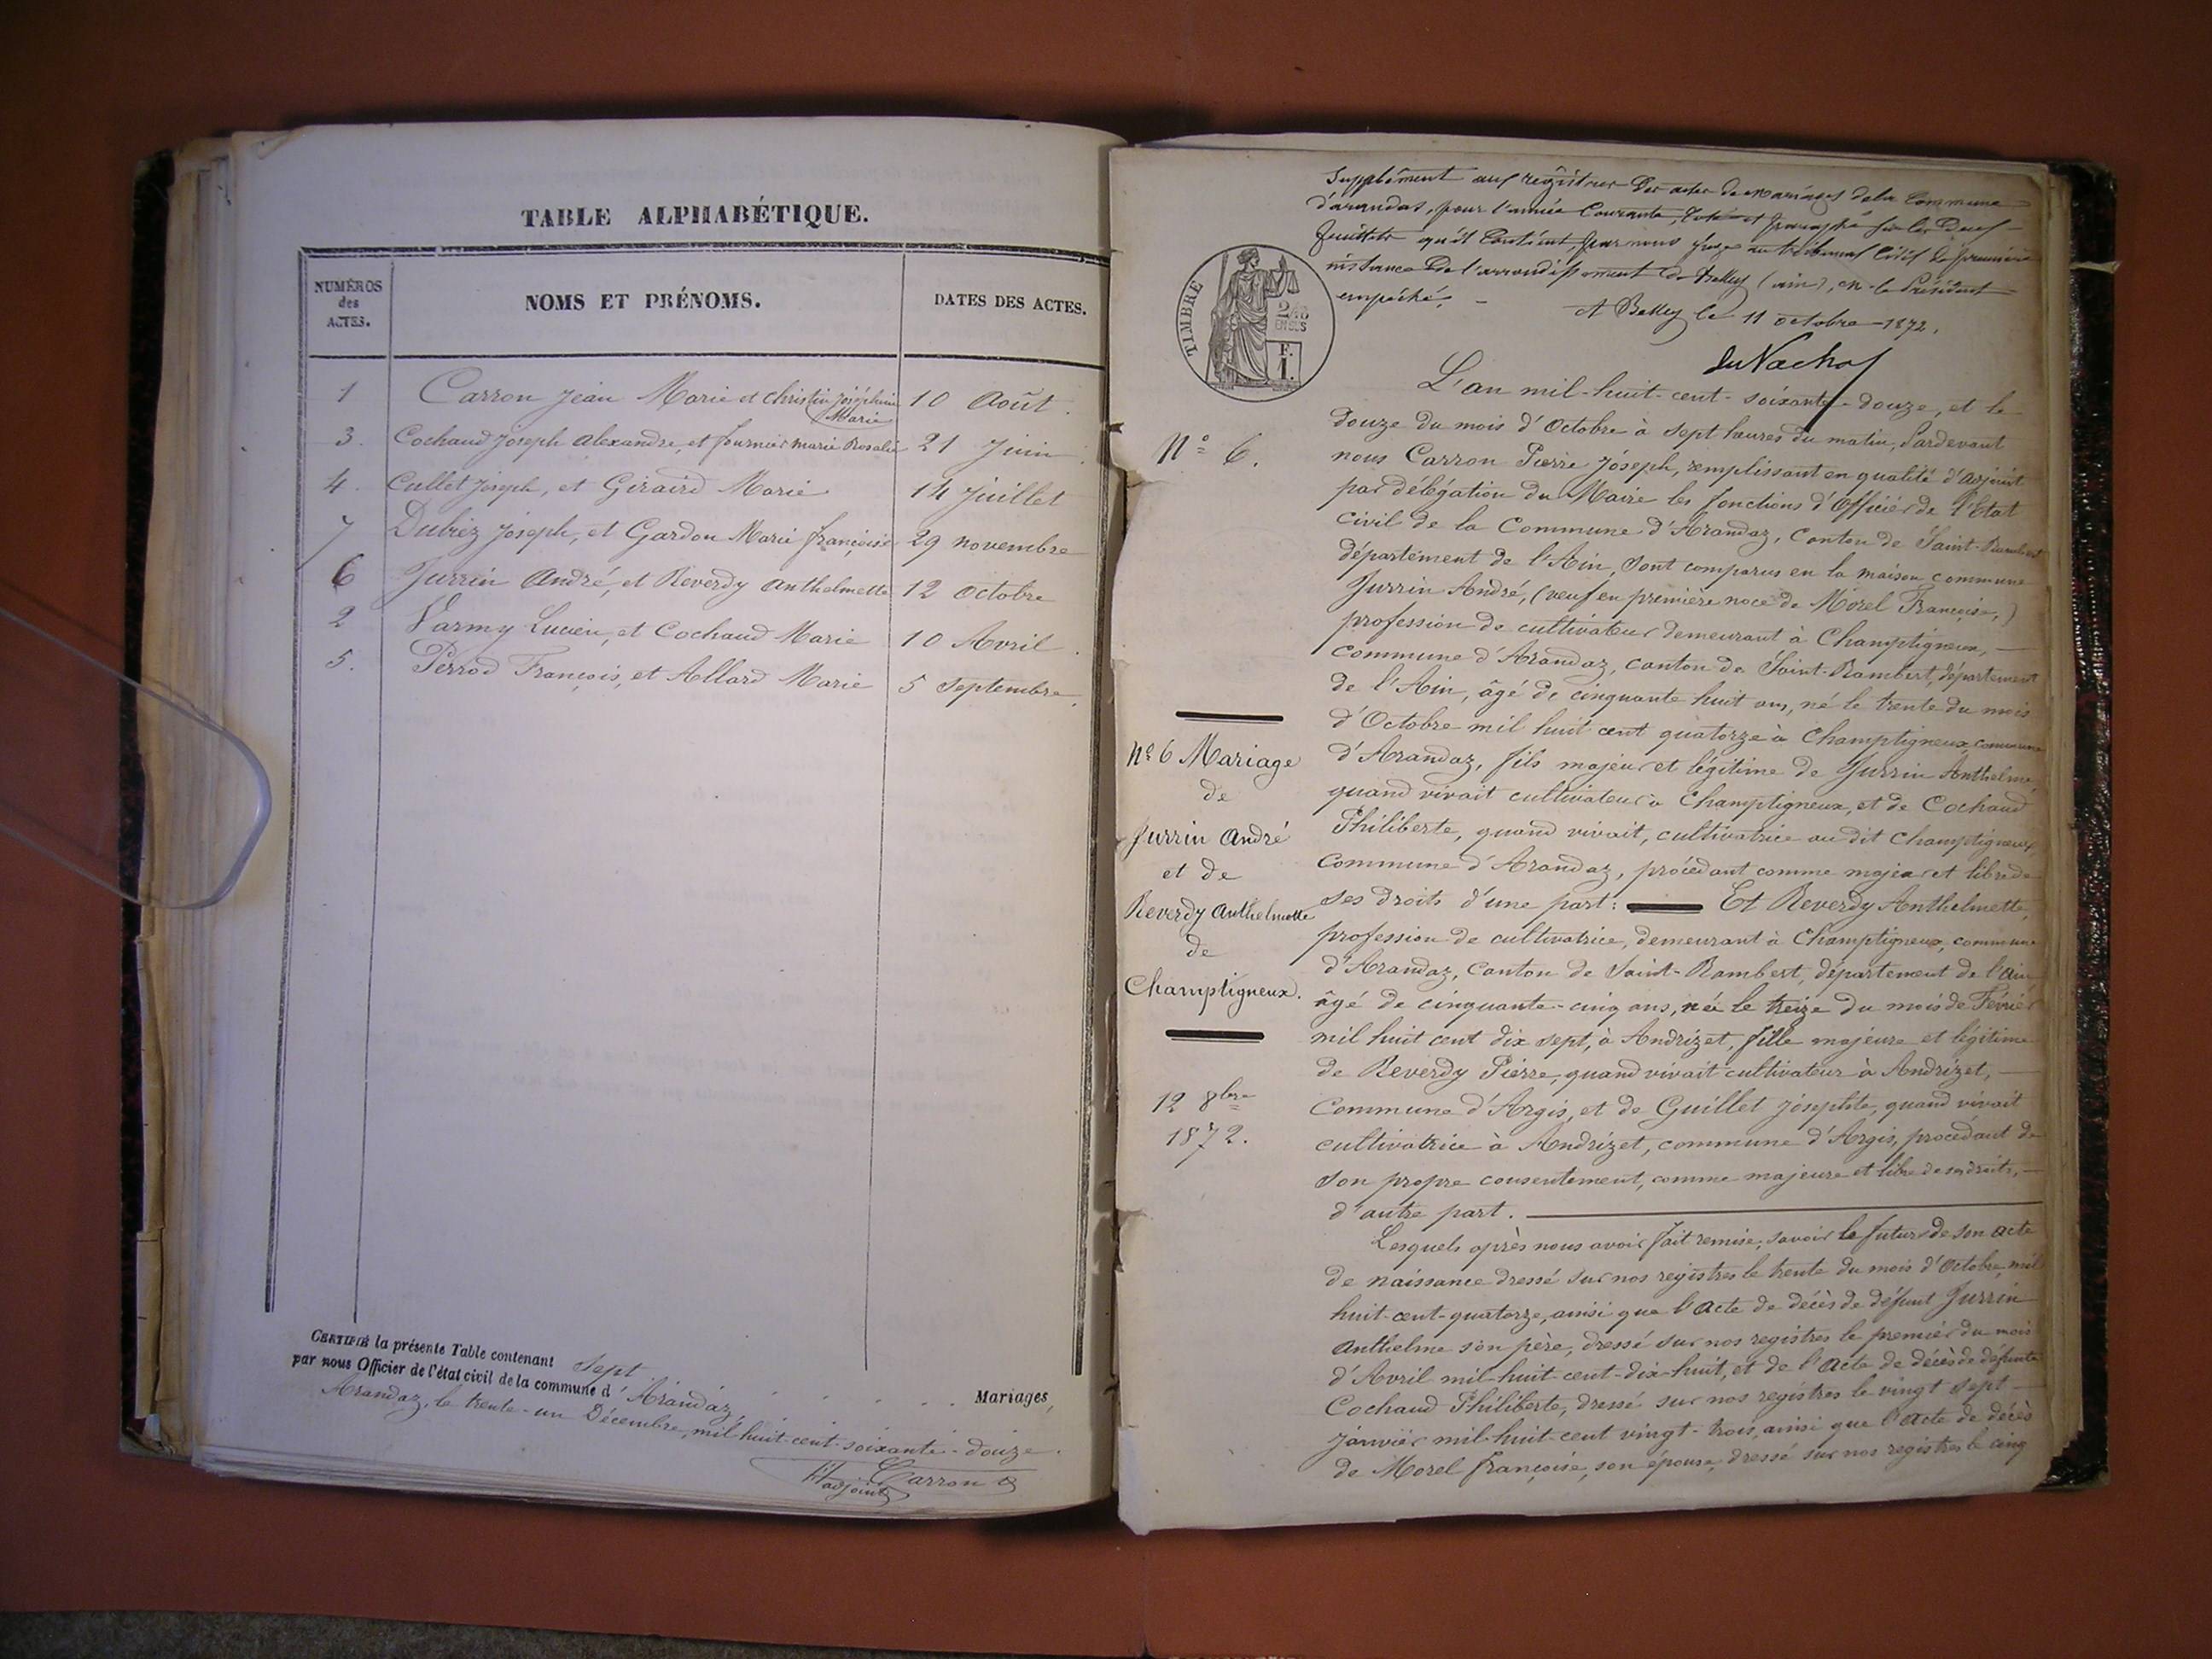 TABLE ALPHABÉTIQUE.
NUMÉROS
des
ACTES.
NOMS ET PRÉNOMS.
DATES DES ACTES.
1 Carron Jean Marie et Christin Joséphine Marie 10 Août.
3. Cochaud Joseph Alexandre, et fournier marie Rosalie 21 Juin.
4. Cullet Joseph, et Giraird Marie 14 Juillet
7 Dubiez Joseph, et Gardon Marie françoise 29 novembre
6 Jurrin André, et Reverdy Anthelmette 12 Octobre
2 Varmy Lucien, et Cochaud Marie 10 Avril.
5. Perrod François, et Allard Marie 5 Septembre.
CERTIFIÉ la présente Table contenant Sept Mariages,
par nous Officier de l'état civil de la commune d'Arandaz,
Arandaz, le trente-un Décembre, mil huit-cent-soixante-douze.
Carron
adjoint
Supplément aux registres des actes de mariages de la Commune
d'arandas, pour l'année Courante, Coté et paraphé sur les Deux
feuillets qu'il Contient, par nous Juge au tribunal Civil de première
instance De l'arrondissement de Belley (ain), en le Président
empêché.
A Belley le 11 octobre 1872.
TIMBRE
2/10
EN SUS
F.
1.
L'an mil-huit-cent-soixante-douze, et le
Douze du mois d'Octobre à Sept heures du matin, Pardevant
N° 6.
nous Carron Pierre Joseph, remplissant en qualité d'Adjoint
par délégation du Maire les fonctions d'Officier de l'Etat
civil de la Commune d'Arandaz, Canton de Saint-Rambert
département de l'Ain, Sont comparus en la maison commune
Jurrin André, (veuf en première noce de Morel Françoise,)
profession de cultivateur demeurant à Champtigneux,
Commune d'Arandaz, canton de Saint-Rambert, département
de l'Ain, âgé de cinquante huit ans, né le trente du mois
d'Octobre mil huit cent quatorze à Champtigneux, commune
N° 6 Mariage
de
Jurrin André
et de
Reverdy Anthelmette
de
Champtigneux.
12 8bre
1872.
d'Arandaz, fils majeur et légitime de Jurrin Anthelme,
quand vivait cultivateur à Champtigneux, et de Cochaud
Philiberte, quand vivait, cultivatrice au dit Champtigneux
Commune d'Arandaz, procédant comme majeur et libre de
ses droits d'une part: Et Reverdy Anthelmette,
profession de cultivatrice, demeurant à Champtigneux, commune
d'Arandaz, Canton de Saint-Rambert, département de l'Ain
âgé de cinquante-cinq ans, née le treize du mois de Février
mil huit cent dix sept, à Andrizet, fille majeure et légitime
de Reverdy Pierre, quand vivait cultivateur à Andrizet,
Commune d'Argis, et de Guillet Josephte, quand vivait
cultivatrice à Andrizet, commune d'Argis, procédant de
Son propre consentement, comme majeure et libre de ses droits,
d'autre part.
Lesquels après nous avoir fait remise, savoir le futur de son acte
de naissance dressé sur nos registres le trente du mois d'Octobre mil
huit-cent-quatorze, ainsi que l'acte de décès de défunt Jurrin
Anthelme son père, dressé sur nos registres le premier du mois
d'Avril mil-huit-cent-dix-huit, et de l'Acte de décès de défunte
Cochaud Philiberte, dressé sur nos registres le vingt sept
janvier mil-huit-cent vingt-trois, ainsi que l'acte de décès
de Morel françoise, son épouse, dressé sur nos registres le cinq